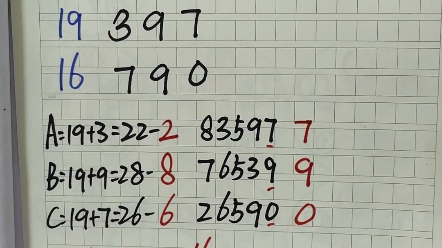 19 397
16 790
A=19+3=22-2 83597 7
B=19+9=28-8 76539 9
C=19+7=26-6 26590 0